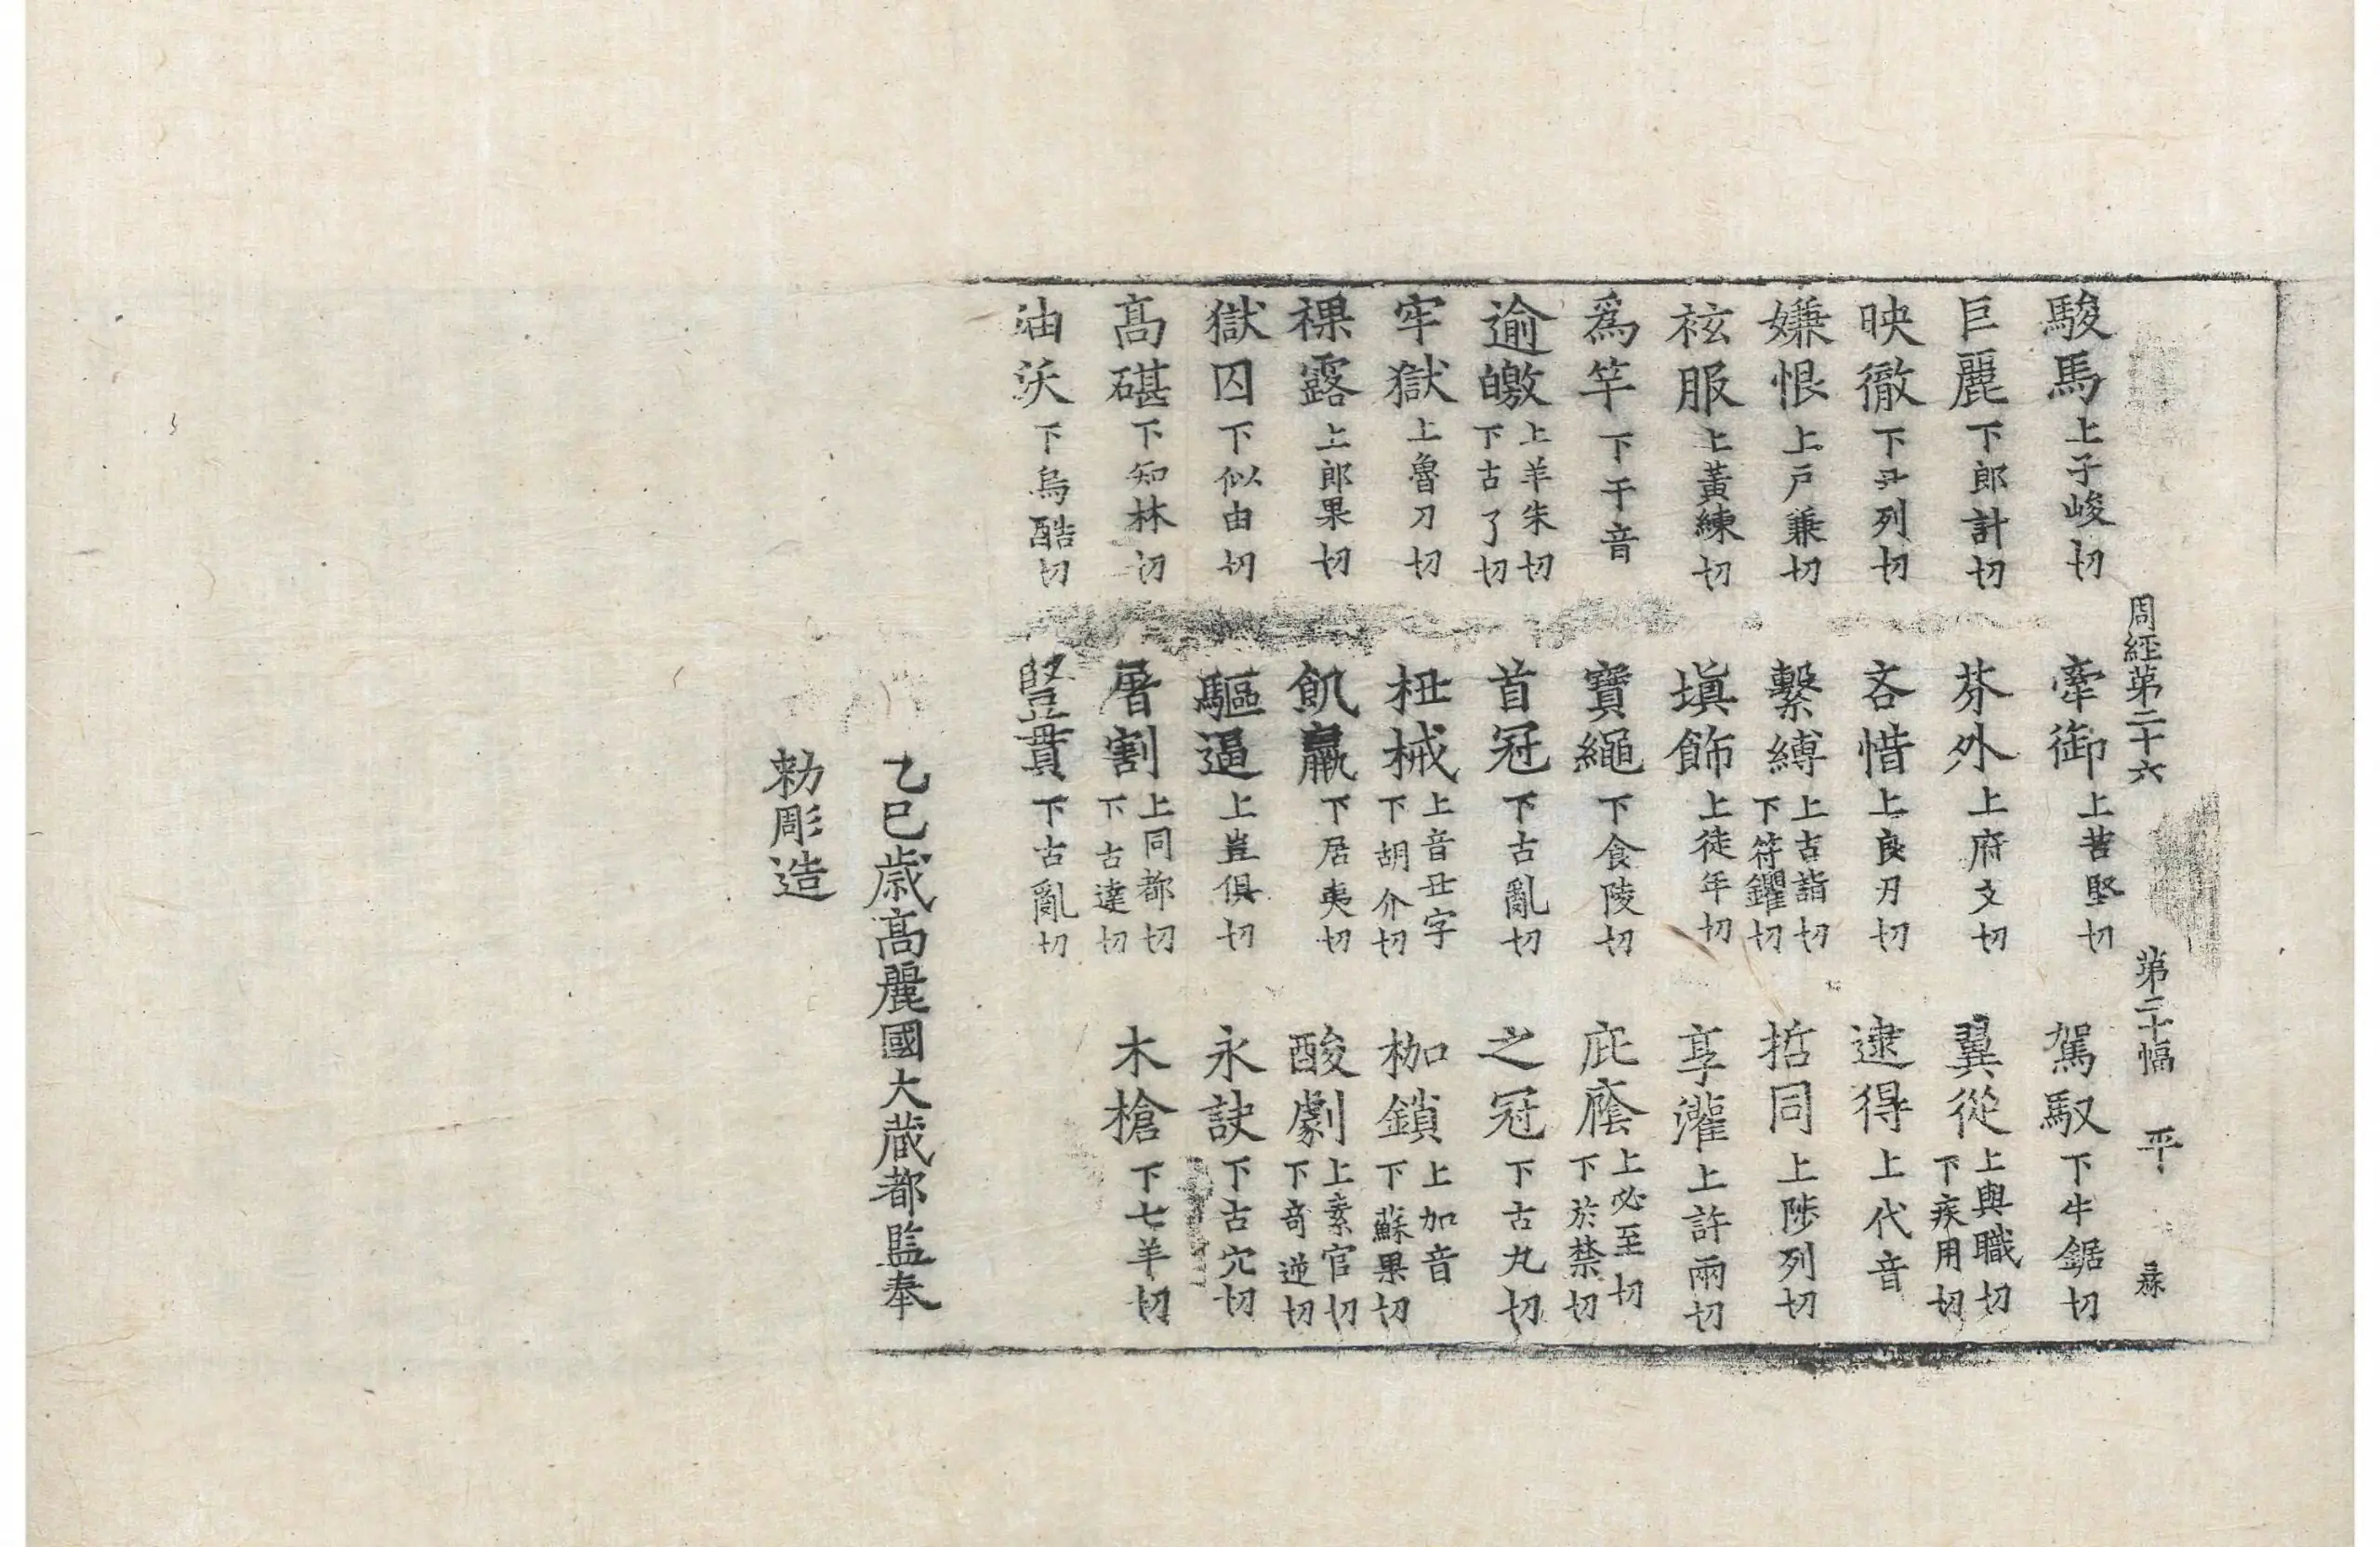 周經第二十六 第二十幅 平
駿馬上子峻切 牽御上苦堅切 駕馭下牛鋸切
巨麗下郎計切 芬外上府文切 翼從上與職切下疾用切
映徹下尹列切 吝惜上良刃切 逮得上代音
嫌恨上戶兼切 繫縛上古詣切下符钁切 哲同上陟列切
袨服上黃練切 塡飾上徒年切 享灌上許兩切
爲竿下干音 寶繩下食陵切 庇廕上必至切下於禁切
逾皦上羊朱切下古了切 首冠下古亂切 之冠下古丸切
牢獄上魯刀切 杻械上音丑字下胡介切 枷鎖上加音下蘇果切
裸露上郎果切 飢羸下居夷切 酸劇上素官切下奇逆切
獄囚下似由切 驅逼上豈俱切 永訣下古穴切
高碪下知林切 屠割上同都切下古達切 木槍下七羊切
油沃下烏酷切 豎貫下古亂切
乙巳歲高麗國大藏都監奉
勅彫造